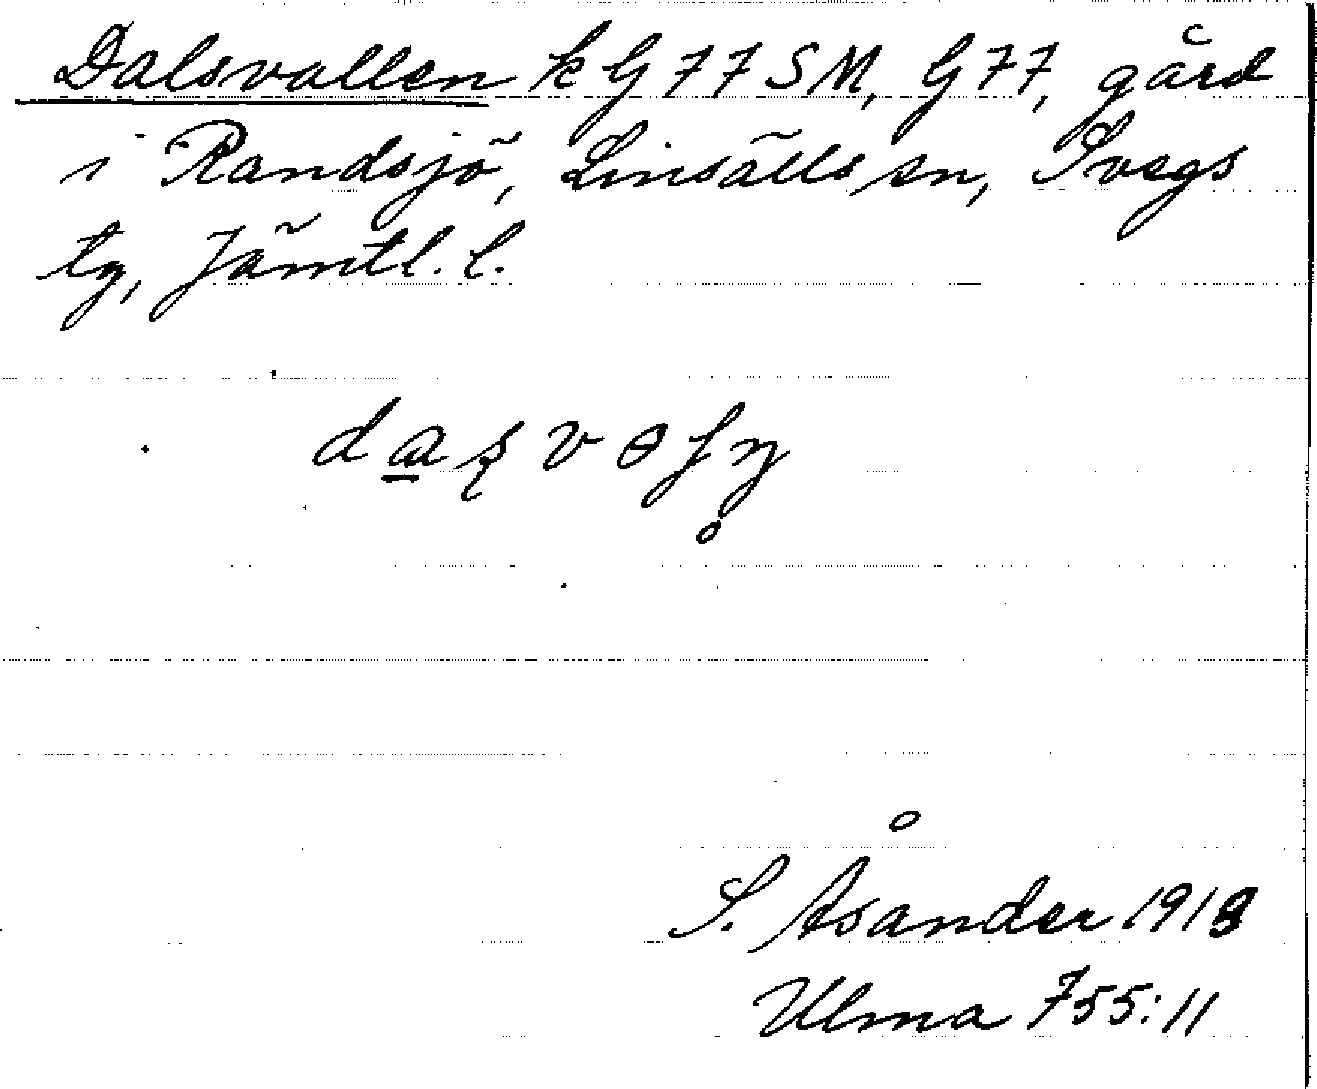 Dalsvallen k G 77 SM, G 77, gård
i Randsjö, Linsälls sn, Svegs
tg, Jämtl. l.
S. Åsander 1918
Ulma 755:11